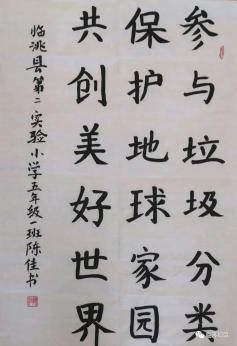 参与垃圾分类
保护地球家园
共创美好世界
临洮县第二实验小学五年级一班陈佳书